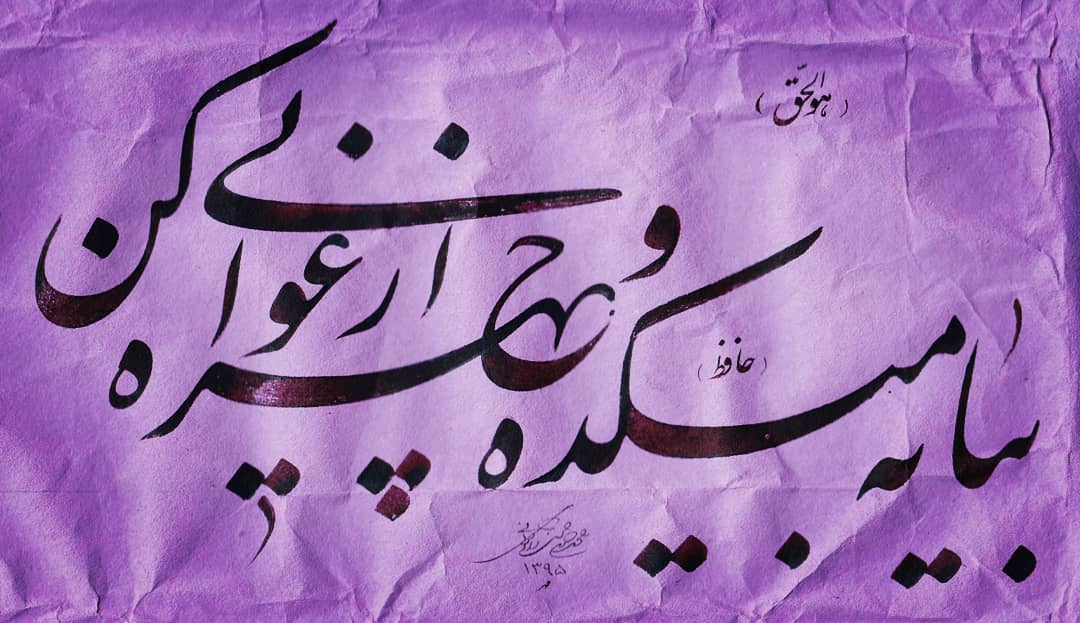 (هوالحق)
بیا به میکده و چهره ارغوانی کن
(حافظ)
۱۳۹۵